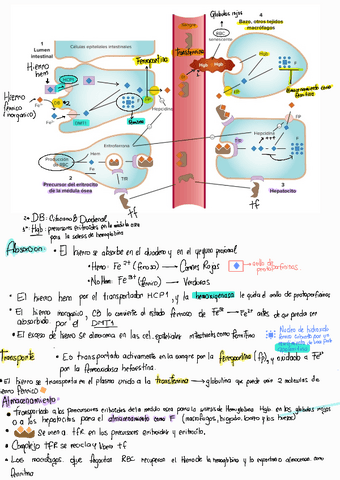 Glóbulos rojos
Sangre
4
Bazo, otros tejidos
macrófagos
1
Lumen
intestinal
Células epiteliales intestinales
Ferroportina
Transferrina
RBC
senescente
Hgb
Hgb
Hierro
hem
HCP1
FP
Hierro
férrico
(inorganico)
Fe³⁺
DB
Fe²⁺
DMT1
F
Hepcidina
almacenado como
ferritina
Eritroferrona
Hem
Fe
Producción
de RBC
TfR
Hepcidina
FP
F
2
Precursor del eritrocito
de la médula ósea
3
Hepatocito
tf
tf
DB: Citocromo B Duodenal
Hgb: precursores eritroides en la médula osea
para la síntesis de hemoglobina
Absorcion:
• El hierro se absorbe en el duodeno y en el yeyuno proximal
• Hemo: Fe²⁺ (ferroso) → Carnes Rojas
anillo de
protoporfirina
• No Hem: Fe³⁺ (férrico) → Verduras
• El hierro hem por el transportador HCP1, y la hemoxigenasa le quita el anillo de protoporfirina
• El hierro inorganico, CB lo convierte al estado ferroso de Fe³⁺ → Fe²⁺ antes de que pueda ser
absorbido por el DMT1
• El exceso de hierro se almacena en las cel. epiteliales intestinales como ferritina
Transporte
• Es transportado activamente en la sangre por la ferroportina (fp), y oxidado a Fe³⁺
por la ferroxidasa hefaestina.
• El hierro se transporta en el plasma unido a la transferrina → globulina que puede unir 2 moleculas de
hierro férrico
Almacenamiento
• Transportado a los precursores eritroides de la médula osea para la síntesis de Hemoglobina Hgb en los globulos rojos
o a los hepatocitos para el almacenamiento como F (macrofagos, higado, bazo y los tejidos)
• Se unen a tfR en los precursores eritroides y eritrocito.
• Complejo tfR se recicla y libera tf
• Los macrofagos que fagocitan RBC recuperan el Hierro de la hemoglobina y lo exportan o almacenan como
ferritina